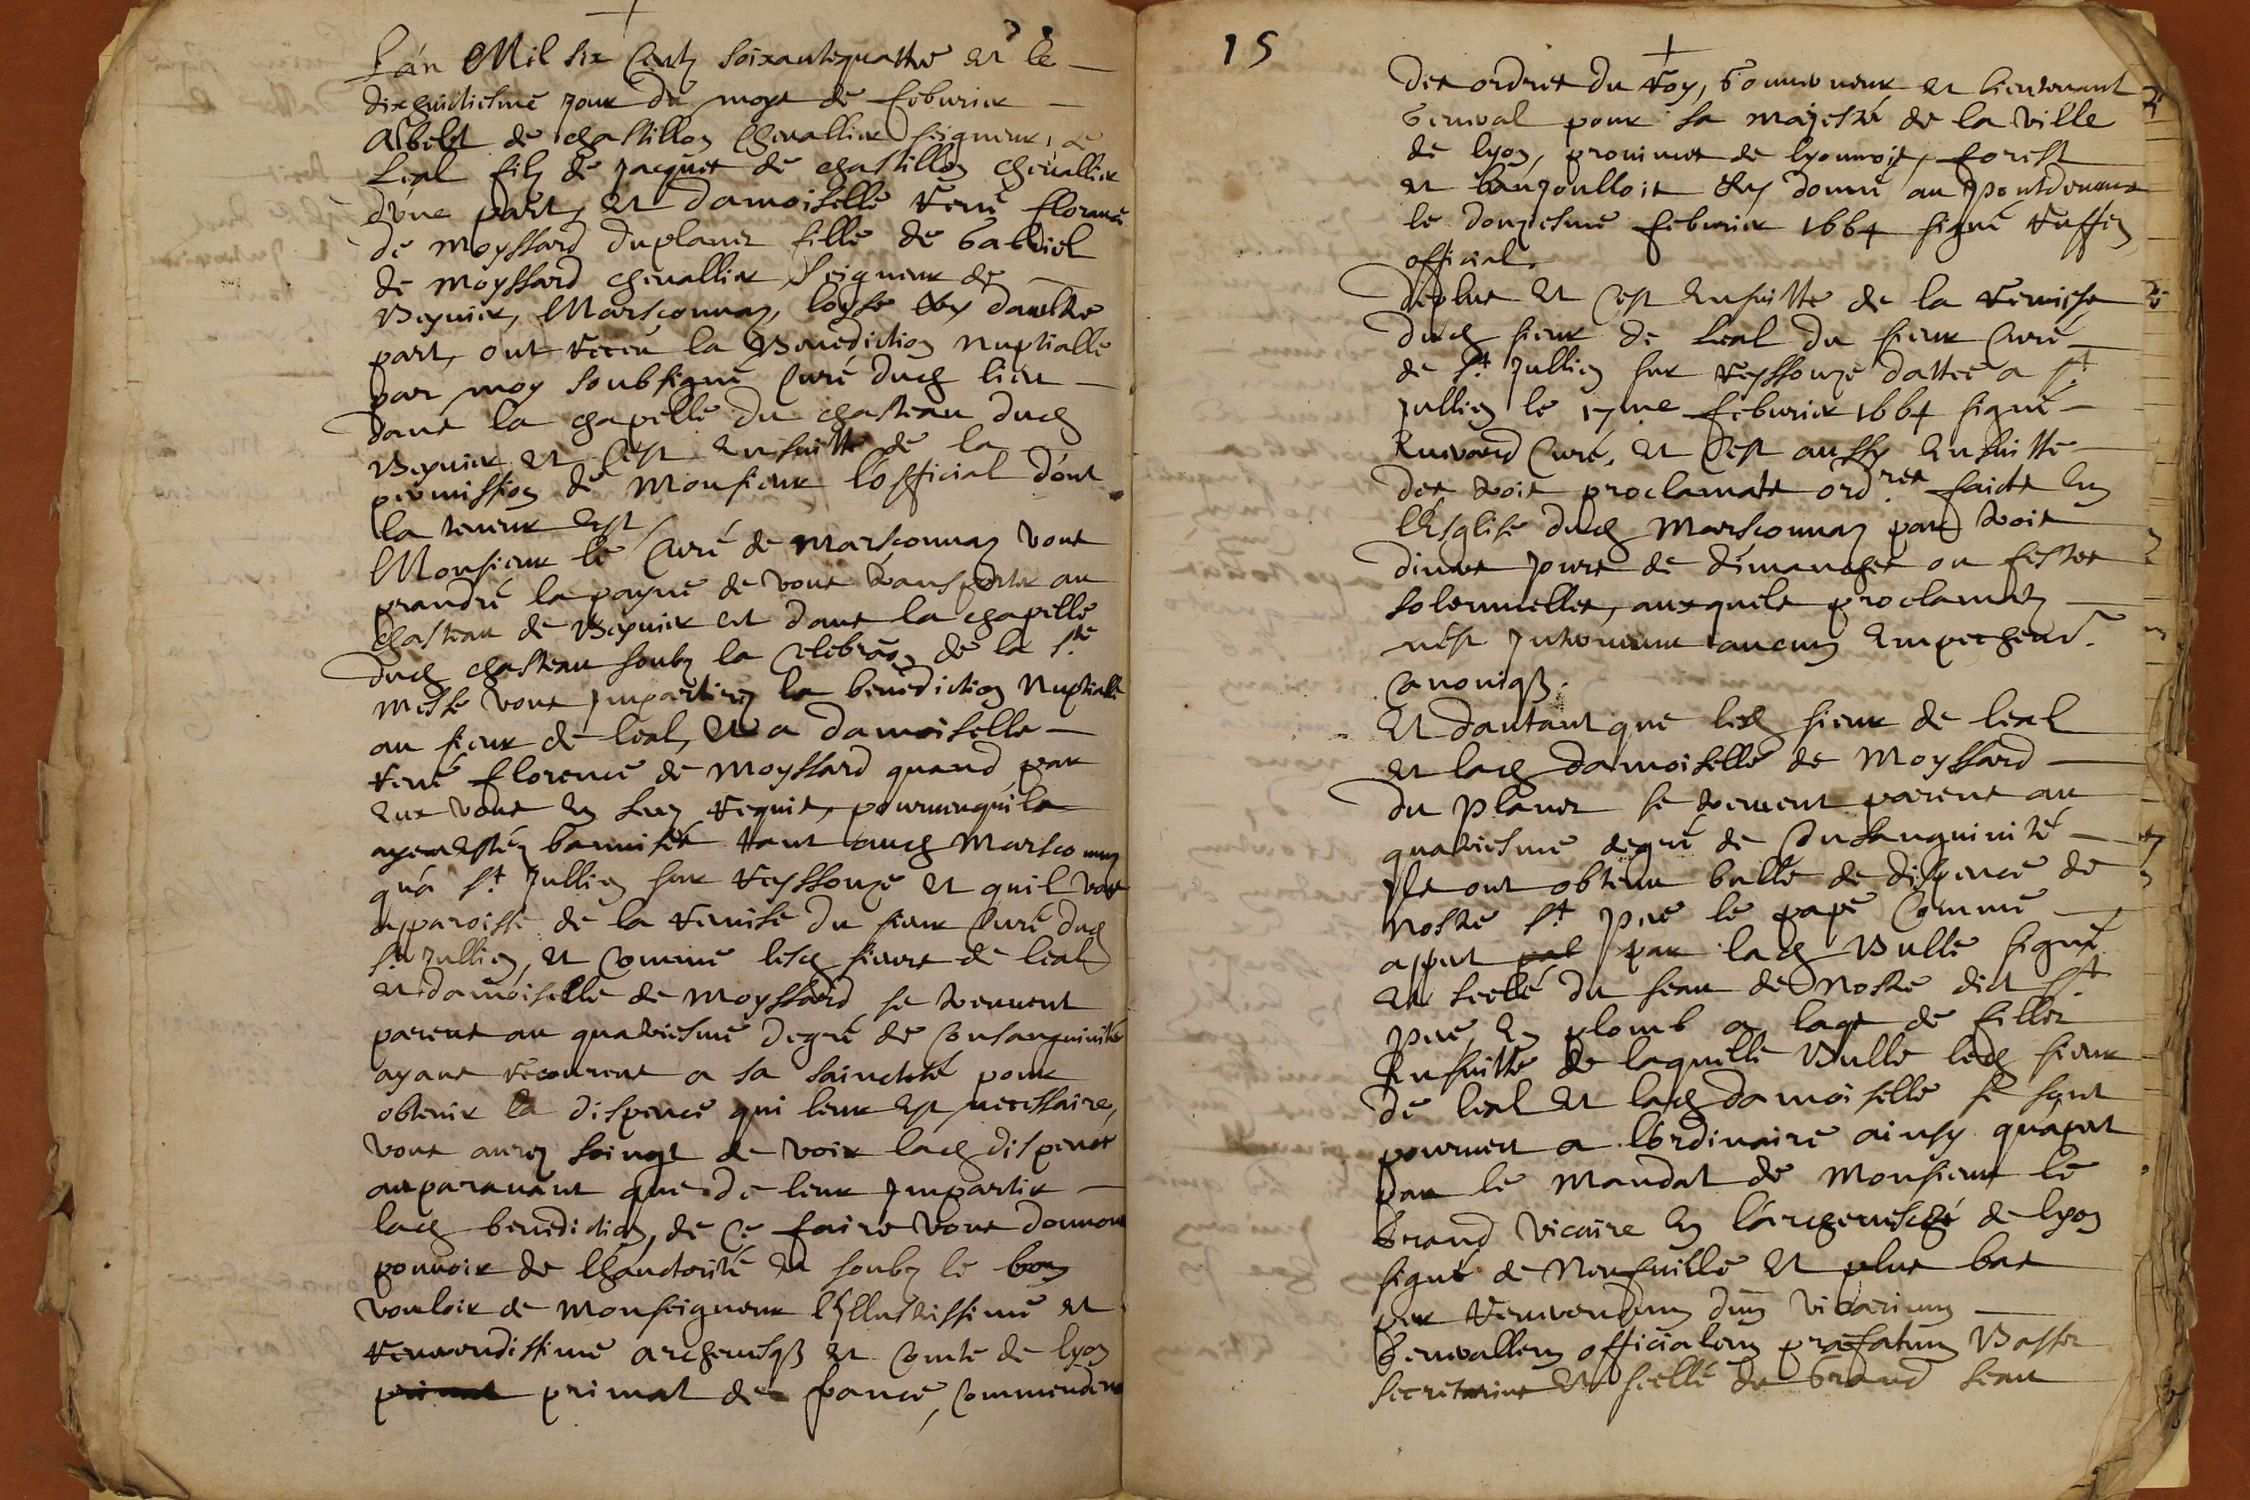 L'an Mil six Centz soixantequattre et le
dixhuictiesme jour du moys de feburier
Albert de Chastillon Chevallier seigneur de
Leal filz de Jacques de Chastillon chevallier
d'une part, et damoiselle René florence
de moyssard duplanet fille de Gabriel
de moyssard chevallier seigneur de
Beyvier, Marsconnay, loyse &c daultre
part, ont receu la Benediction nuptialle
par moy soubsigné Curé dud lieu
dans la chapelle du chasteau dud
Beyvier et c'est ensuitte de la
permission de Monsieur l'official dont
la teneur est
Monsieur le Curé de marsconnay vous
prandré la payne de vous transporter au
chasteau de Beyvier et dans la chapelle
dud chasteau soubz la celebraõn de la Ste
messe vous impartirez la benediction nuptialle
au sieur de leal, et a damoiselle
René florence de moyssard quand par
eux vous en serez requis, pourveuquilz
ayent estéz bannisés tant aud Marsconnay
qu'a St Jullien sur Reyssouze et quil vous
apparoisse de la remise du sieur Curé dud
St Jullien, et comme lesd sieurs de leal
et damoiselle de moyssard se treuvent
parens au quatriesme degré de consanguinité
ayant recourus a sa saincteté pour
obtenir la dispence qui leur est necessaire,
vous aurez soingt de voir lad dispence
auparavant que de leur impartir
lad benediction, de ce faire vous donnons
pouvoir de l'hauctorité et soubz le bon
vouloir de Monseigneur l'Illustrissime et
reverendissime archevesq et Comte de lyon
primat primat de france, commendeur
15
des ordres du roy, Gouverneur et lieutenant
General pour sa majesté de la ville
de lyon, province de lyonnois, forest
et baujoullois &c donné au pontdevaux
le douziesme feburier 1664 signé Ruffin
official.
deplus et c'est ensuitte de la remise
dud sieur de Leal du sieur Curé
de St Jullien sur Reyssouze dattée a St
Jullien le 17me feburier 1664 signé
Curé, et c'est aussy ensuitte
des trois proclamats ordres faicts en
l'Esglise dud Marsconnay par trois
divers jours de dimanches ou festes
solemnelles, auxquels proclamatz
n'est intervenu aucun empecheãt
canoniq.
Et dautant que led sieur de leal
et lad damoiselle de Moyssard
du planet se treuvent parens au
quatriesme degré de Consanguinité
ils ont obtenu bulle de dispence de
nostre St pere le pape comme
appert par par lad Bulle signé
et seellé du seau de nostre dict St
pere, en plomb a laqs de filles
Ensuitte de laquelle Bulle led sieur
de leal et lad damoiselle se sont
pourveu a l'ordinaire ainsy quapert
par le mandat de Monsieur le
Grand vicaire en l'archevesché de lyon
signé de Neufville et plus bas
per Reverendum dnũ vicarium
Generallem officialem præfatum Basset
secretarius et seellé du Grand seau